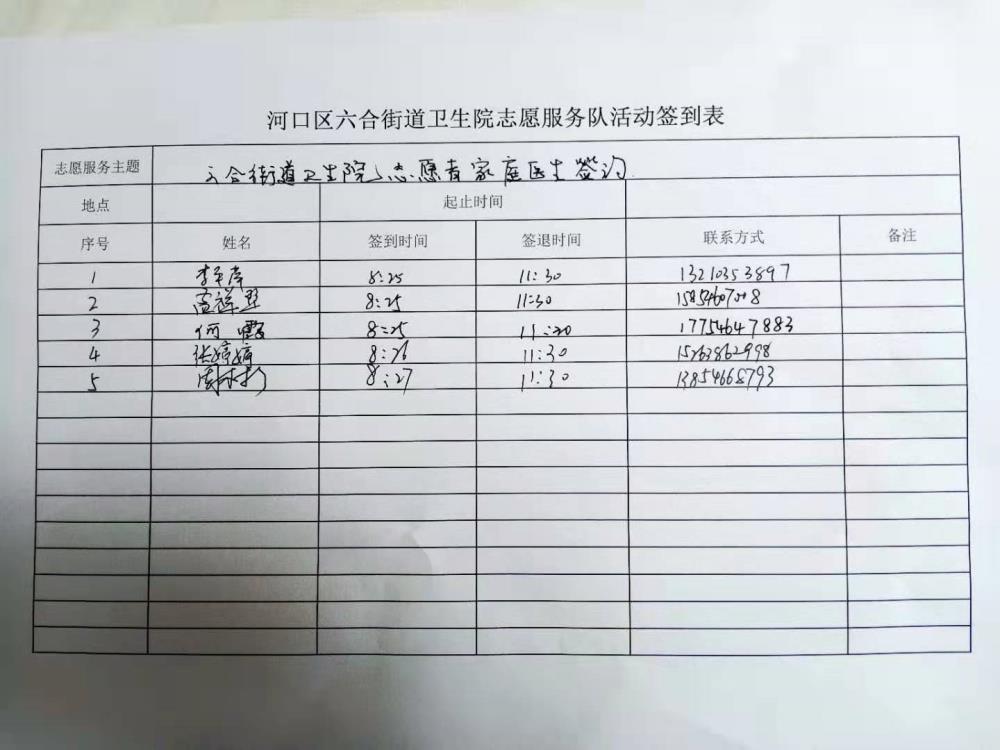 河口区六合街道卫生院志愿服务队活动签到表
志愿服务主题 六合街道卫生院志愿者家庭医生签约
地点 起止时间
序号 姓名 签到时间 签退时间 联系方式 备注
1 8:25 11:30 13210353897
2 8:25 11:30
3 何 8:25 11:30 17754647883
4 张婷婷 8:26 11:30 15263862998
5 8:27 11:30 13854668793